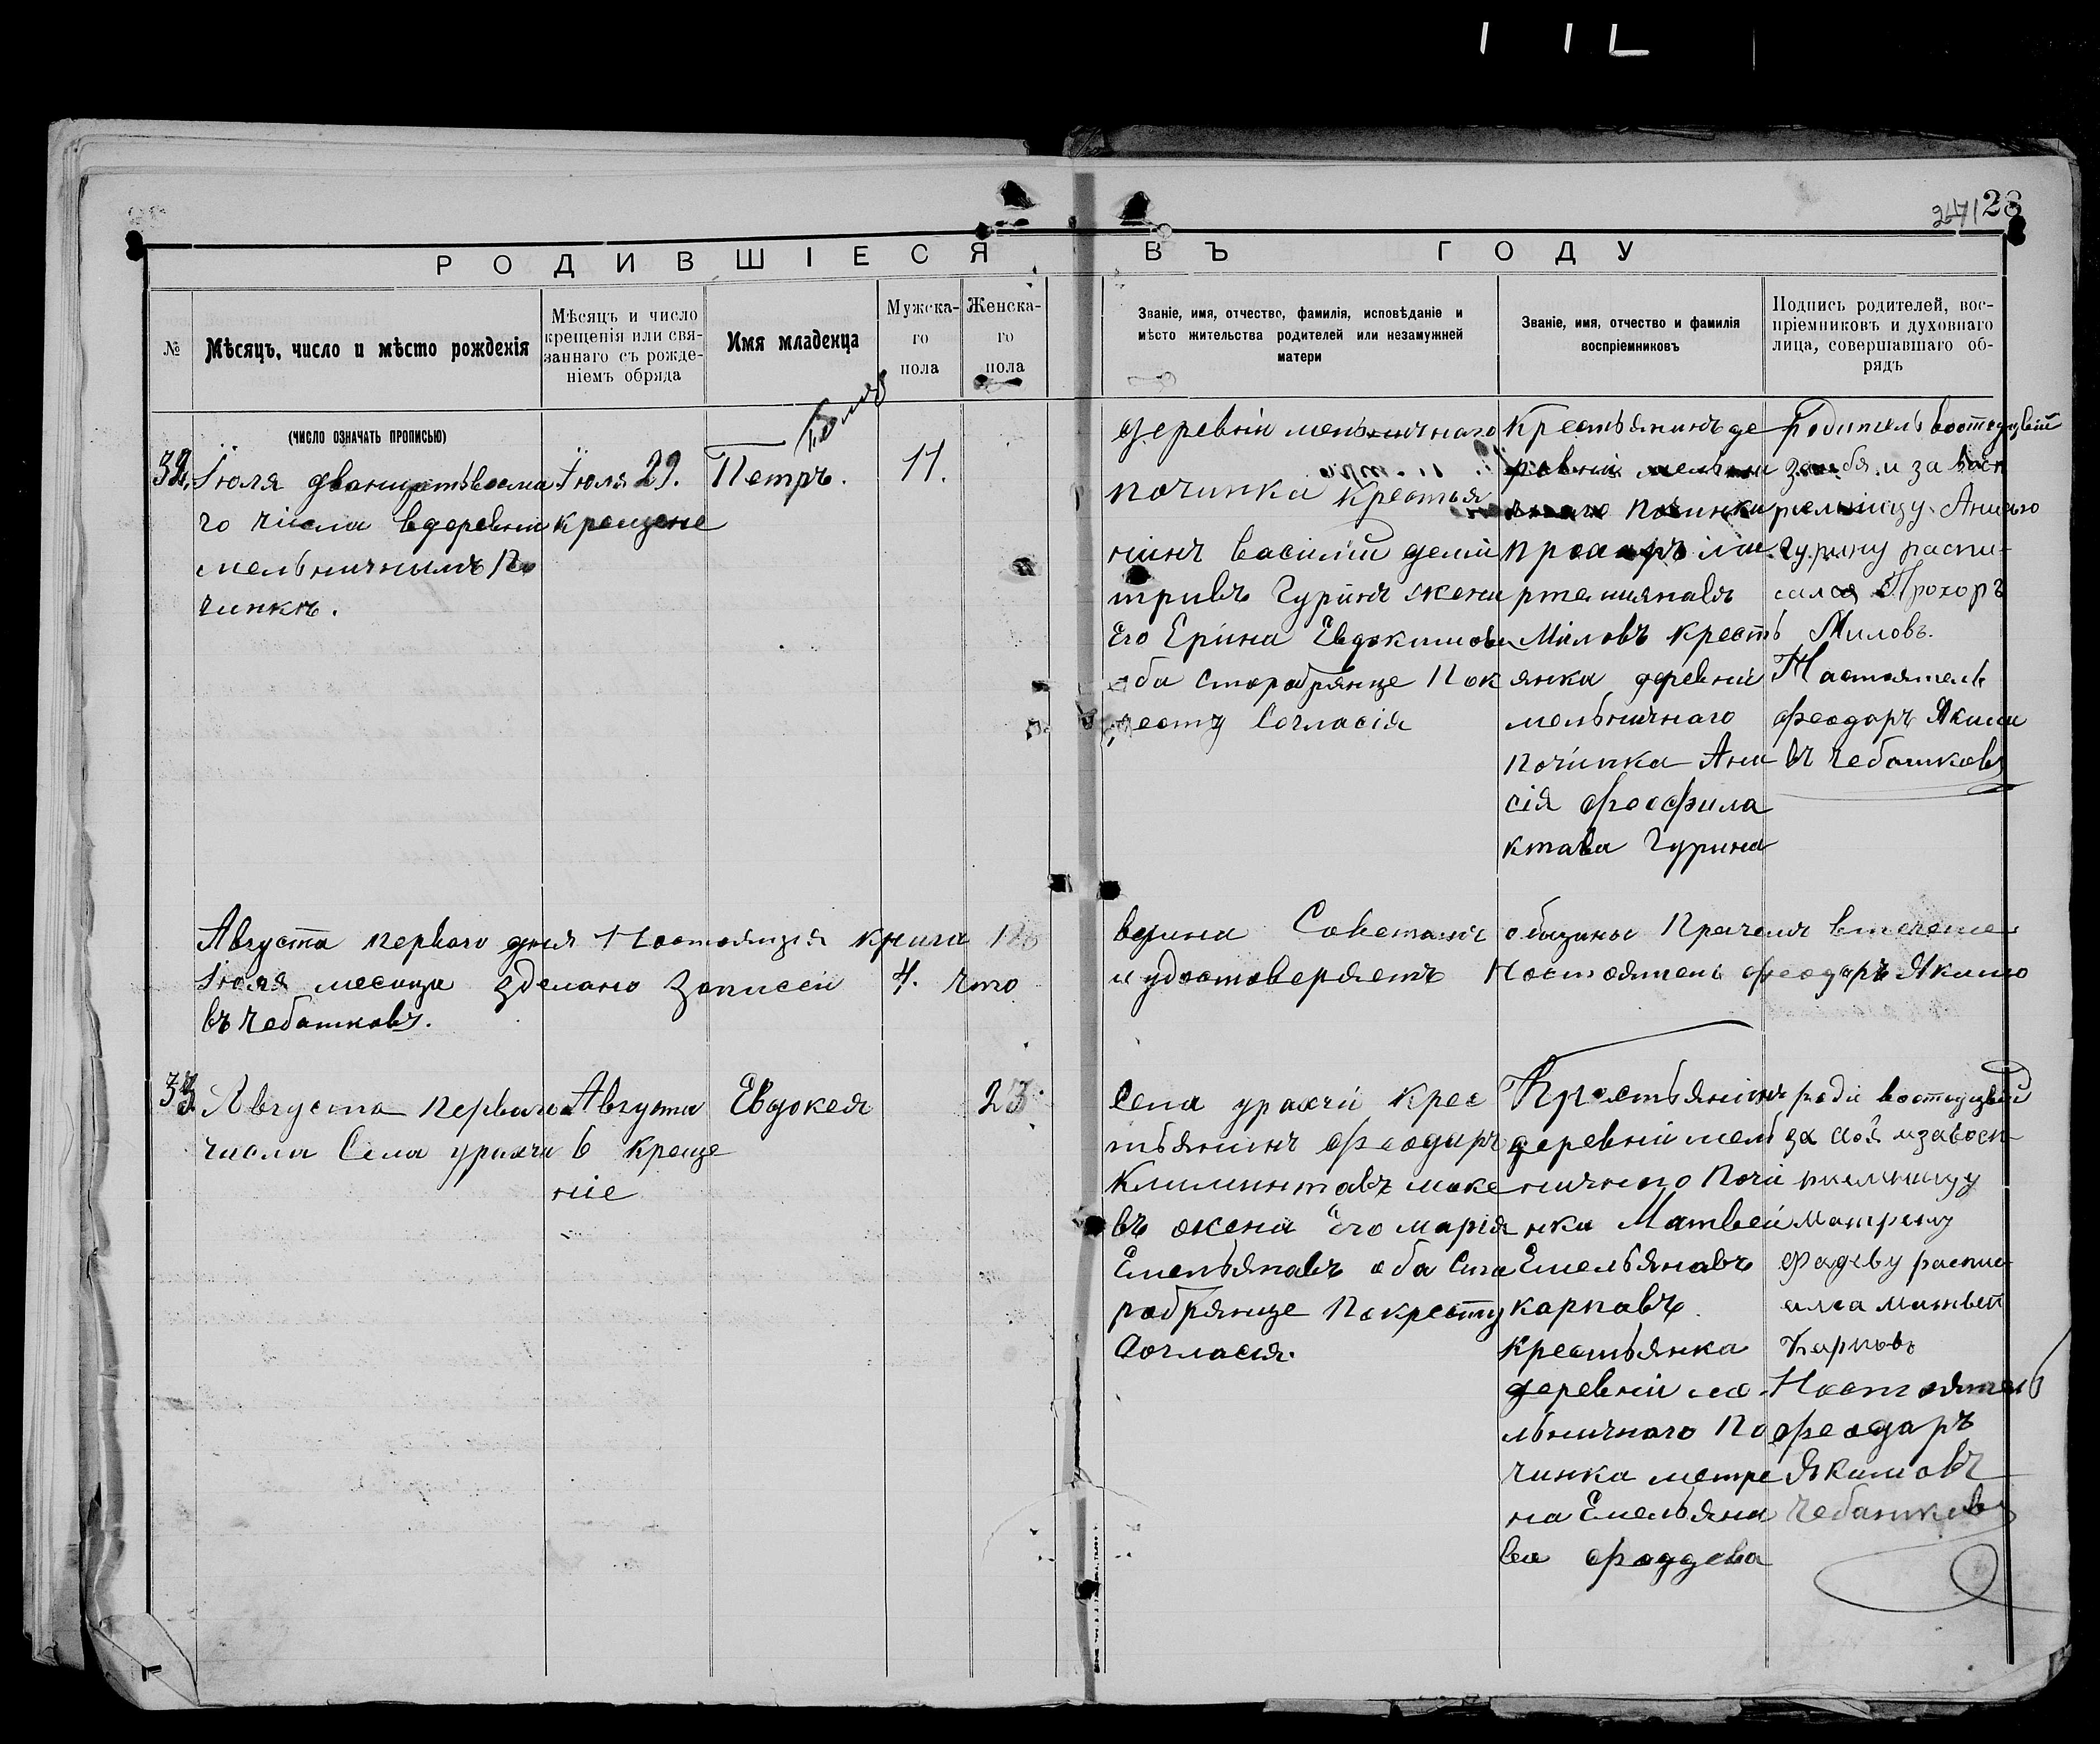 28
РОДИВШІЕСЯ ВЪ ГОДУ
№
Мѣсяцъ, число и мѣсто рожденія
Мѣсяцъ и число
крещенія или свя-
заннаго съ рожде-
ніемъ обряда
Имя младенца
Мужска-
го
пола
Женска-
го
пола
Званіе, имя, отчество, фамилія, исповѣданіе и
мѣсто жительства родителей или незамужней
матери
Званіе, имя, отчество и фамилія
воспріемниковъ
Подпись родителей, вос-
пріемниковъ и духовнаго
лица, совершавшаго об-
рядъ
(число означать прописью)
32.
Іюля
го числа вдеревни
мельничнымъ По
чинки.
Іюля 29.
крещене
Петръ.
11.
деревни мельничнаго
починка крестья
нинъ василий деми
тривъ Гуринъ жена
Его Ерина Евдокимова
оба старобрянце Пок
ресту Согласія
Крестьянинъ де
ревни мельни
чнаго Починка
Миловъ крест
янка деревни
мельничнаго
починка Ани
сія феофила
ктава Гурина
Родитель
за себя и за восп
риемницу Анисью
Гурину распи-
сался Прохоръ
Миловъ.
Настоятель
феодоръ Якимо
въ Чебашковъ
Августа перваго дня Настоящія книга
Іюля месяца зделано Записей 4. что
въ Чебашковъ.
верина Советамъ общины Причемъ втечете
и удостоверяетъ Настоятель феодоръ Якимо
33.
Августа перваго
числа Села урахчи
Августа
6 креще
ние
Евдокея
23
Села урахчи крес
тьянинъ феодаръ
Климинтавъ маке
въ жена Его марія
Емельянавъ оба Ста
робрянце Покресту
Согласія.
Крестьянинъ
деревни мель
ничнаго Почи
нка Матвей
Емельянавъ
карпавъ.
крестьянка
деревни ме
льничнаго По
чинка матре
на Емельяна
ва фаддева
за себя изавосп-
риемницу
Матрену
Фадеву распис
ался Матвей
Карповъ
Настоятель
феодаръ
Якимовъ
Чебашковъ